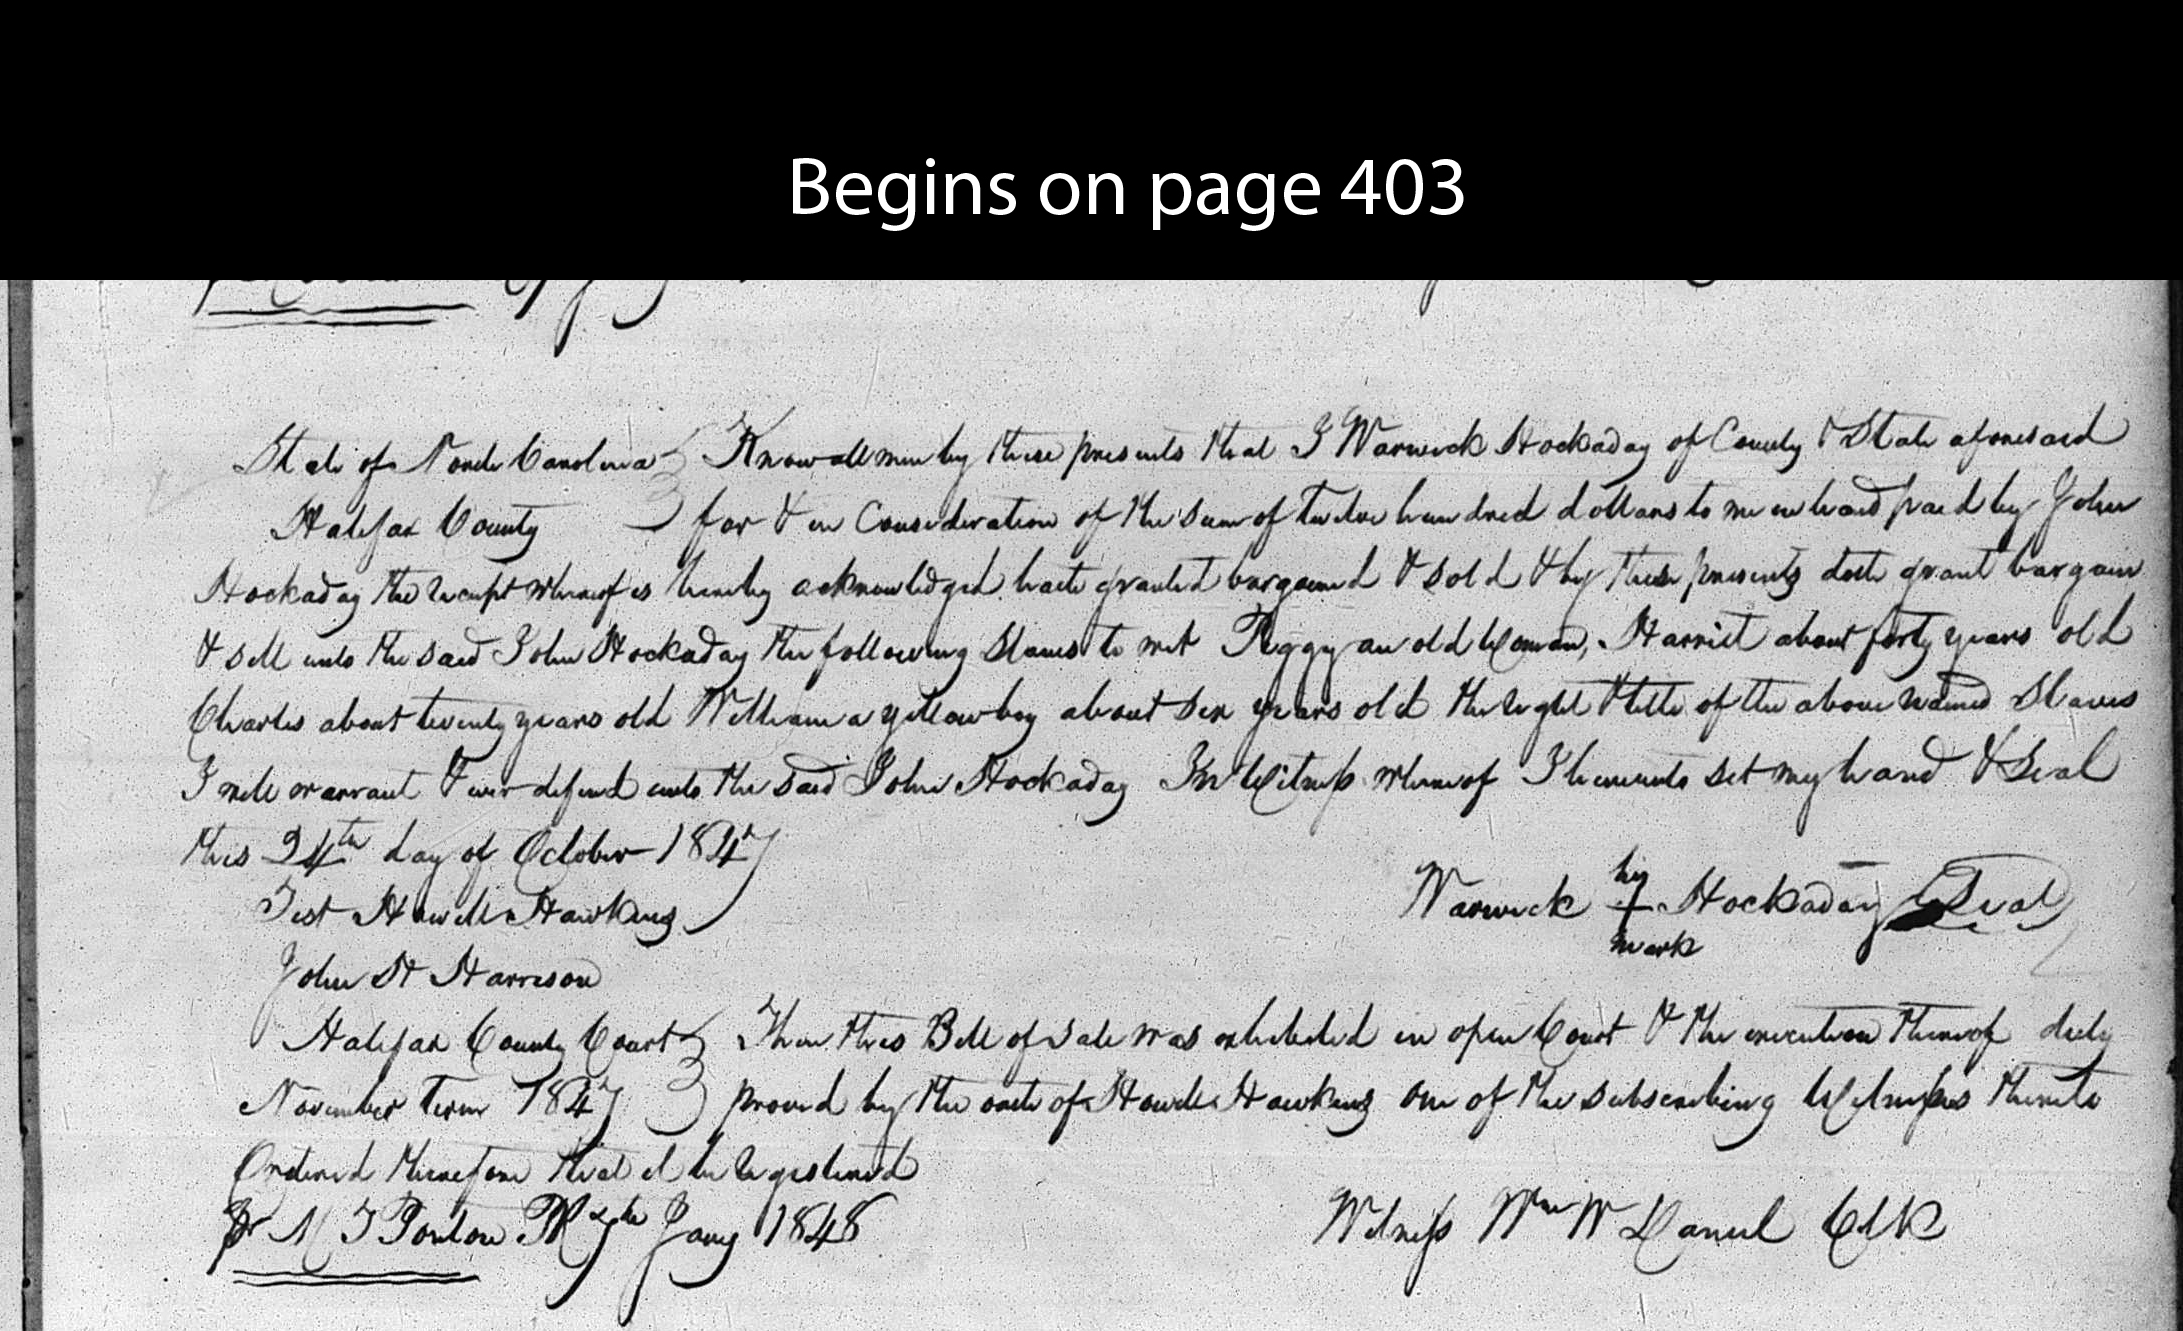 Begins on page 403
State of North Carolina Know all men by these presents that I Warwick Hockaday of County & State aforesaid
Halifax County for & in Consideration of the sum of twelve hundred dollars to me in hand paid by John
Hockaday the receipt whereof is hereby acknowledged hath granted bargained & sold & by these presents doth grant bargain
& sell unto the said John Hockaday the following Slaves to wit Peggy an old Woman, Harriet about forty years old
Charles about twenty years old William a yellow boy about six years old the right & title of the above named Slaves
I will warrant & ever defend unto the said John Hockaday In Witness whereof I hereunto set my hand & Seal
this 24th day of October 1847
Test Howell Hawkins Warwick his + mark Hockaday Seal
John H Harrison
Halifax County Court Then this Bill of sale was exhibited in open Court & the execution thereof duly
November term 1847 proved by the oath of Howell Hawkins one of the subscribing Witnesses thereto
Ordered therefore that it be registered
Witness Wm W Daniel Clk
Pr M T Ponton PR 7th Jany 1848